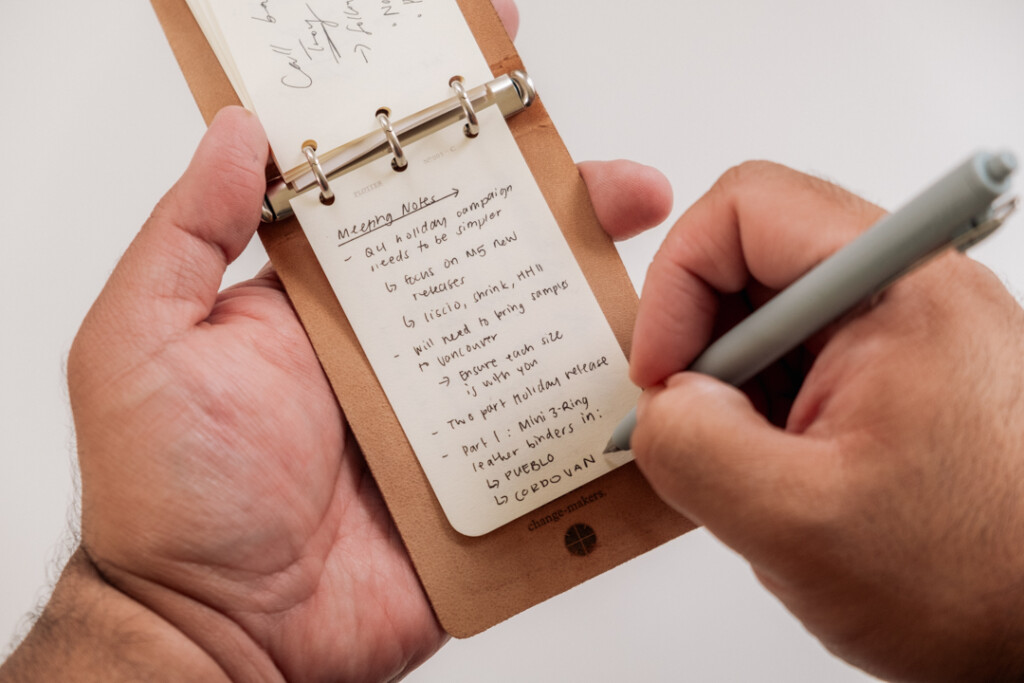 Call
Troy
PLOTTER
Meeting Notes →
- Q4 holiday campaign
needs to be simpler
↳ Focus on M5 new
releases
↳ liscio, shrink, HH11
- Will need to bring samples
to Vancouver
→ Ensure each size
is with you
- Two part Holiday release
- Part 1: Mini 3-Ring
leather binders in:
↳ PUEBLO
↳ CORDOVAN
change-makers.